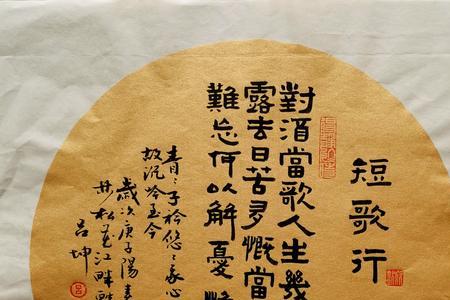 短歌行
對酒當歌人生幾
露去日苦多慨當
難忘何以解憂
青〻子衿悠〻我心
故沉吟至今
歲次庚子陽春
江畔
呂坤